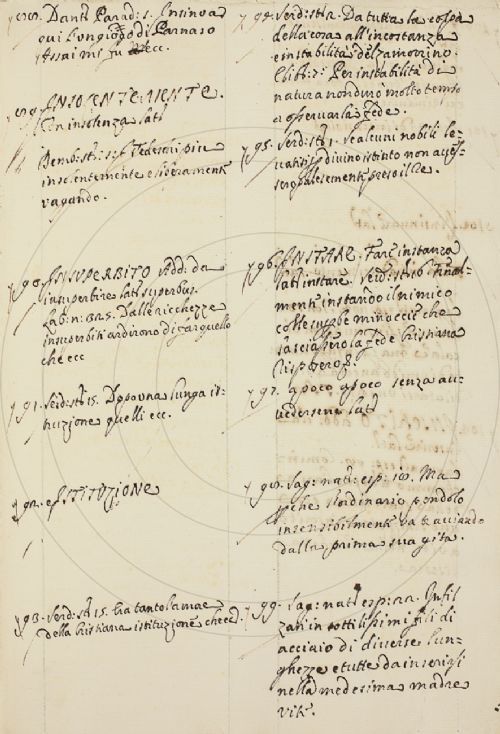 788. Dant. Parad: 1. Insino a
qui l'un giogo di Parnaso
Assai mi fu ecc.
789. INSOLENTEMENTE.
Con insolenza lat.
Bemb: st: 1: 5: Tedeschi più
insolentemente e liberament.
vagando.
790. INSUPERBITO Add: da
insuperbire lat. superbus.
Lab: n: 325. Dalle ricchezze
insuperbiti ardirono di far quello
che ecc
791. Serd: st. 15. Dopo una lunga is-
truzione quelli ecc.
792. ISTITUZIONE
793. Serd: st. 15. tanto
della Cristiana istituzione che ecc.
794. Serd: st: 2. Da tutta la
della cosa all'incostanza
e instabilità del Zamorino.
E lib: 7: Per instabilità di
natura non durò molto tempo
a osservar la fede.
795. Serd: st: 1. Se alcuni nobili le-
vatisi divino istinto non aves-
sero palesemente preso il Re.
796. INSTARE. Fare instanza
lat. instare. Serd: st: 16 Final-
ment. instando il nimico
colle minaccie che
lasciassero la fede Cristiana
Risposero
797. A poco a poco senza av-
vedersene lat.
798. Sag: nat: esp: 10. Ma
che l'ordinario pendolo
insensibilment. va tracciando
dalla prima sua gita.
799. Sag: nat: esp: 22. Infil
zati in sottilissimi fili di
acciaio di diverse lun-
ghezze e tutte da inserirsi
nella medesima madre
vite.